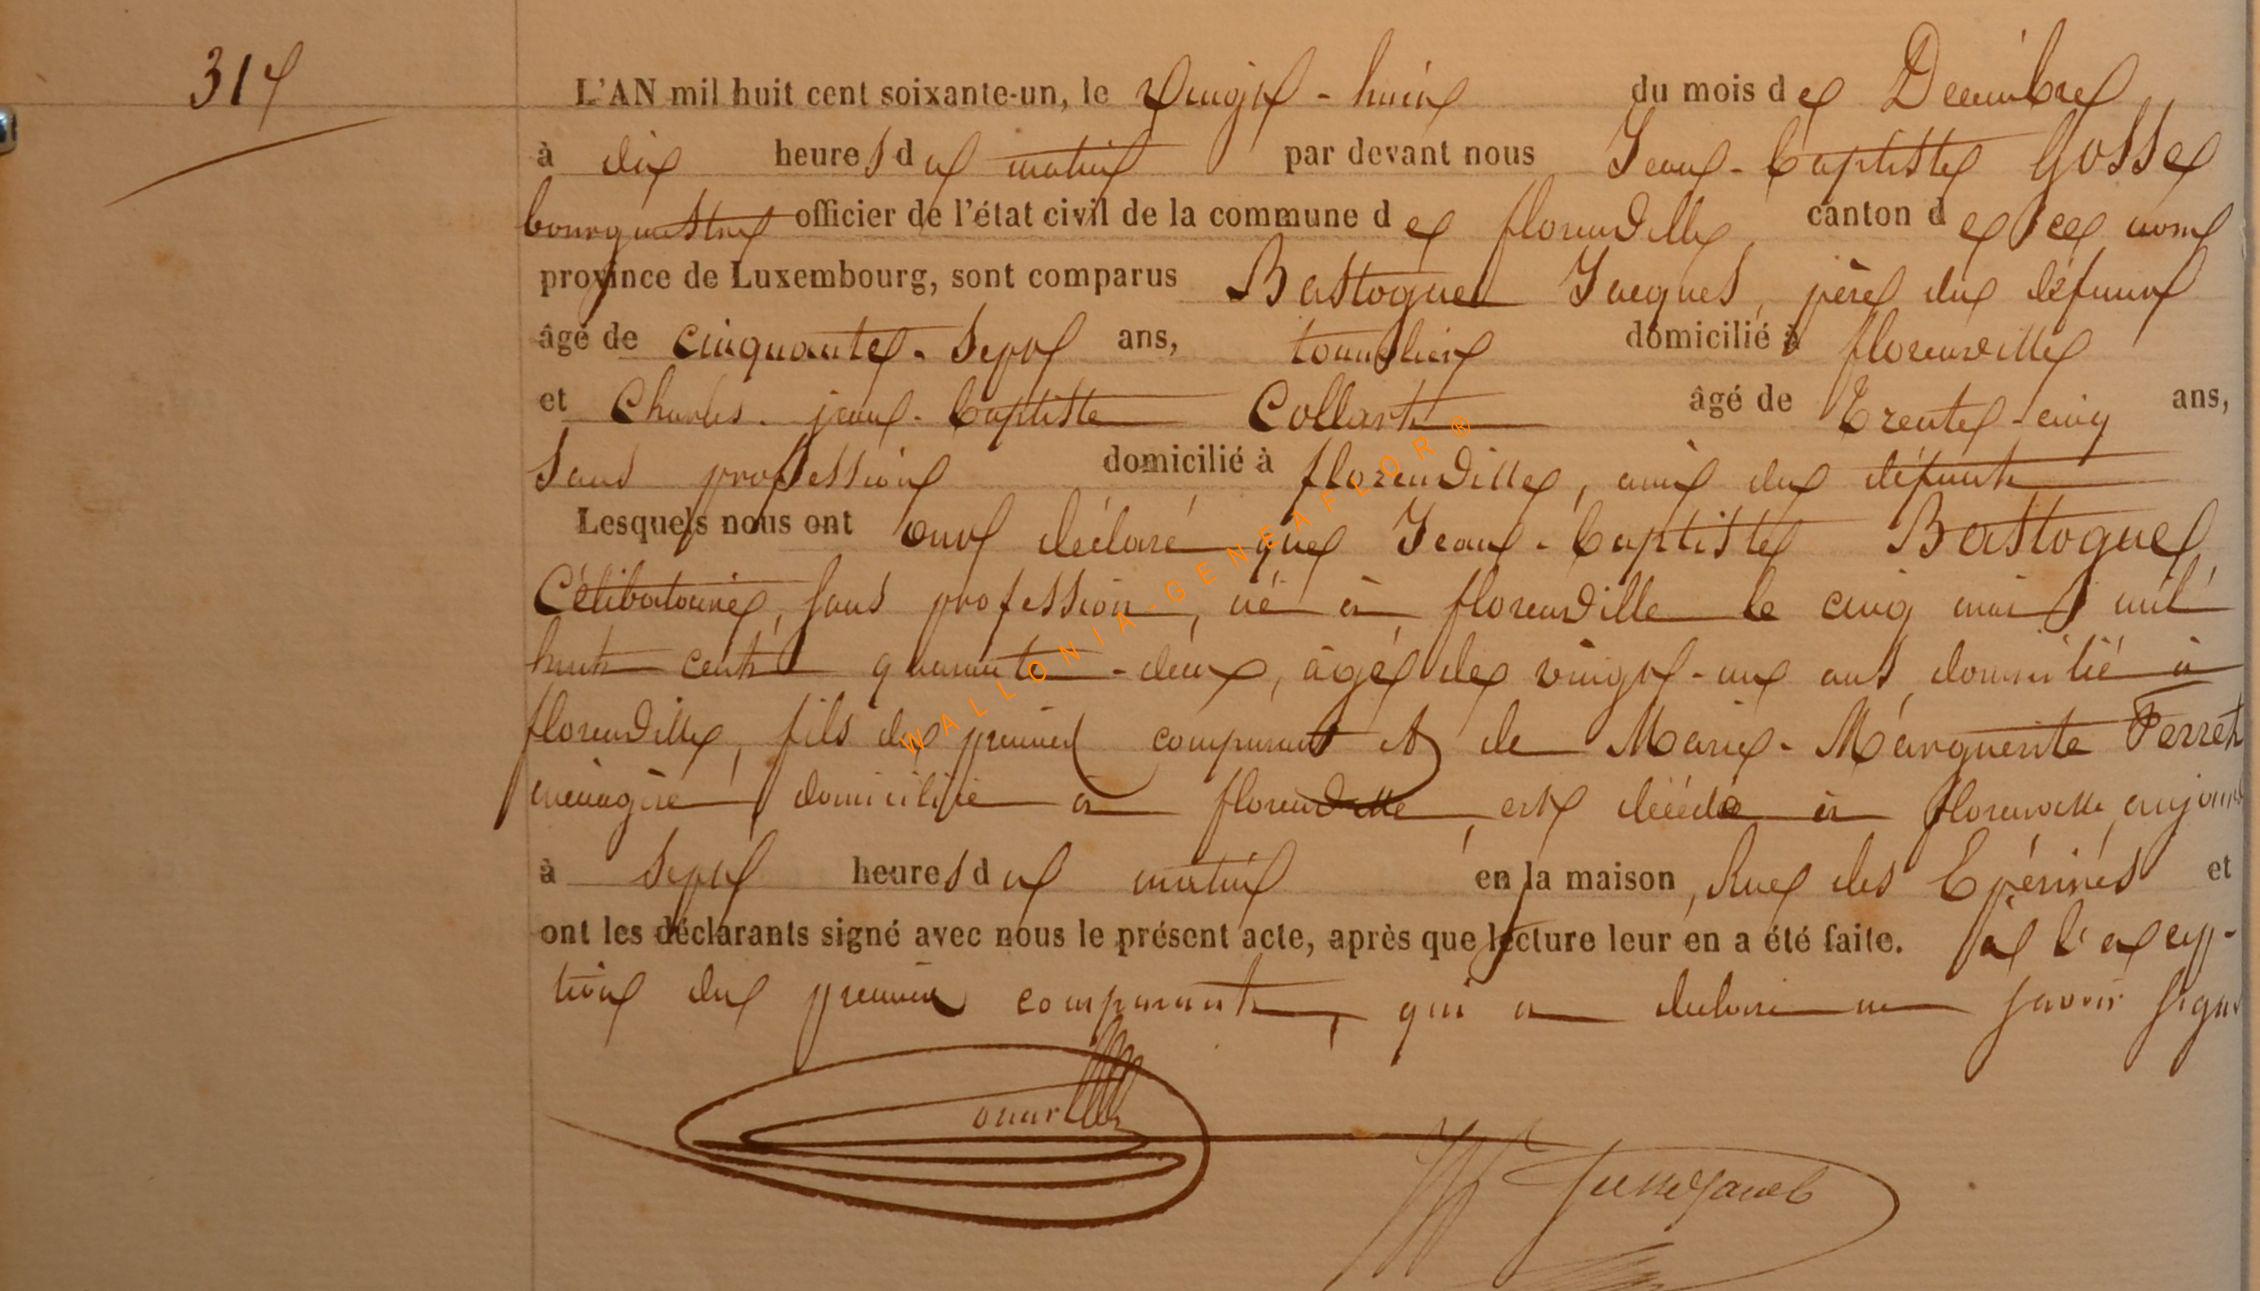 317
L'AN mil huit cent soixante-un, le Vingt-huit du mois de Decembre
à dix heures du matin par devant nous Jean-baptiste Gosse
bourgmestre officier de l'état civil de la commune de florenville, canton de ce nom
province de Luxembourg, sont comparus Bastogne Jacques, père du défunt
âgé de cinquante-sept ans, domicilié à florenville
et Charles-jean-baptiste Collart âgé de Trente-cinq ans,
sans profession domicilié à florenville, ami du défunt
Lesquels nous ont ont déclaré que Jean-baptiste Bastogne,
Célibataire, sans profession, né à florenville le cinq mil
huit cent quarante-deux, âgé de vingt-un ans, domicilié à
florenville, fils du premier comparant et de Marie-Marguerite Perret
ménagère domiciliée à florenville, est décédé à florenville, aujourd
à sept heures du matin en la maison, Rue des Epérines et
ont les déclarants signé avec nous le présent acte, après que lecture leur en a été faite. à l'excep-
tion du premier comparant, qui a declaré ne savoir signer
WALLONIA-GENEAFLOR®